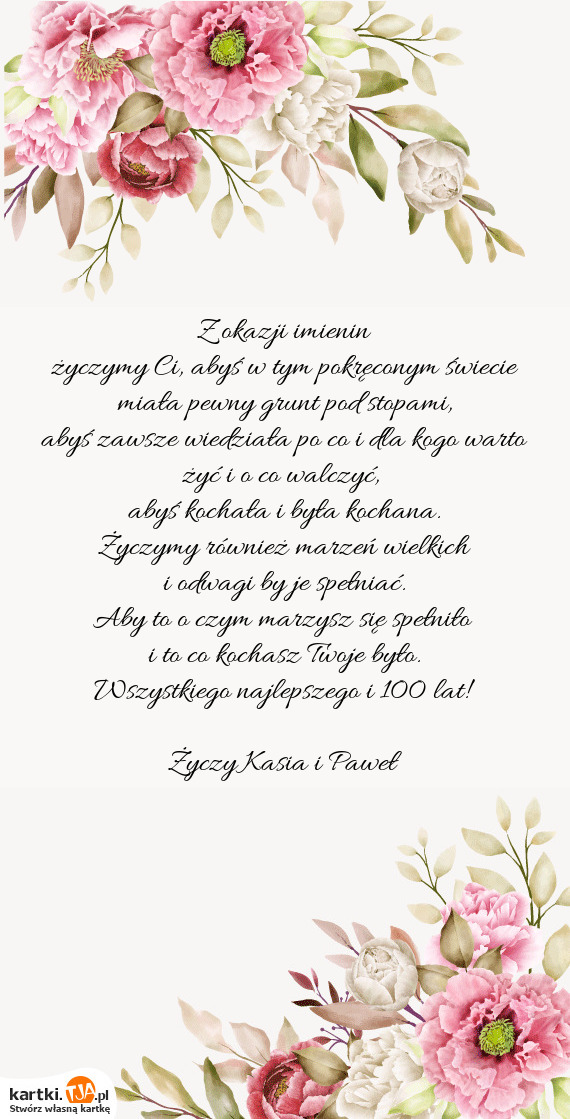 Z okazji imienin
życzymy Ci, abyś w tym pokręconym świecie
miała pewny grunt pod stopami,
abyś zawsze wiedziała po co i dla kogo warto
żyć i o co walczyć,
abyś kochała i była kochana.
Życzymy również marzeń wielkich
i odwagi by je spełniać.
Aby to o czym marzysz się spełniło
i to co kochasz Twoje było.
Wszystkiego najlepszego i 100 lat!
Życzy Kasia i Paweł
kartki.TJA.pl
Stwórz własną kartkę